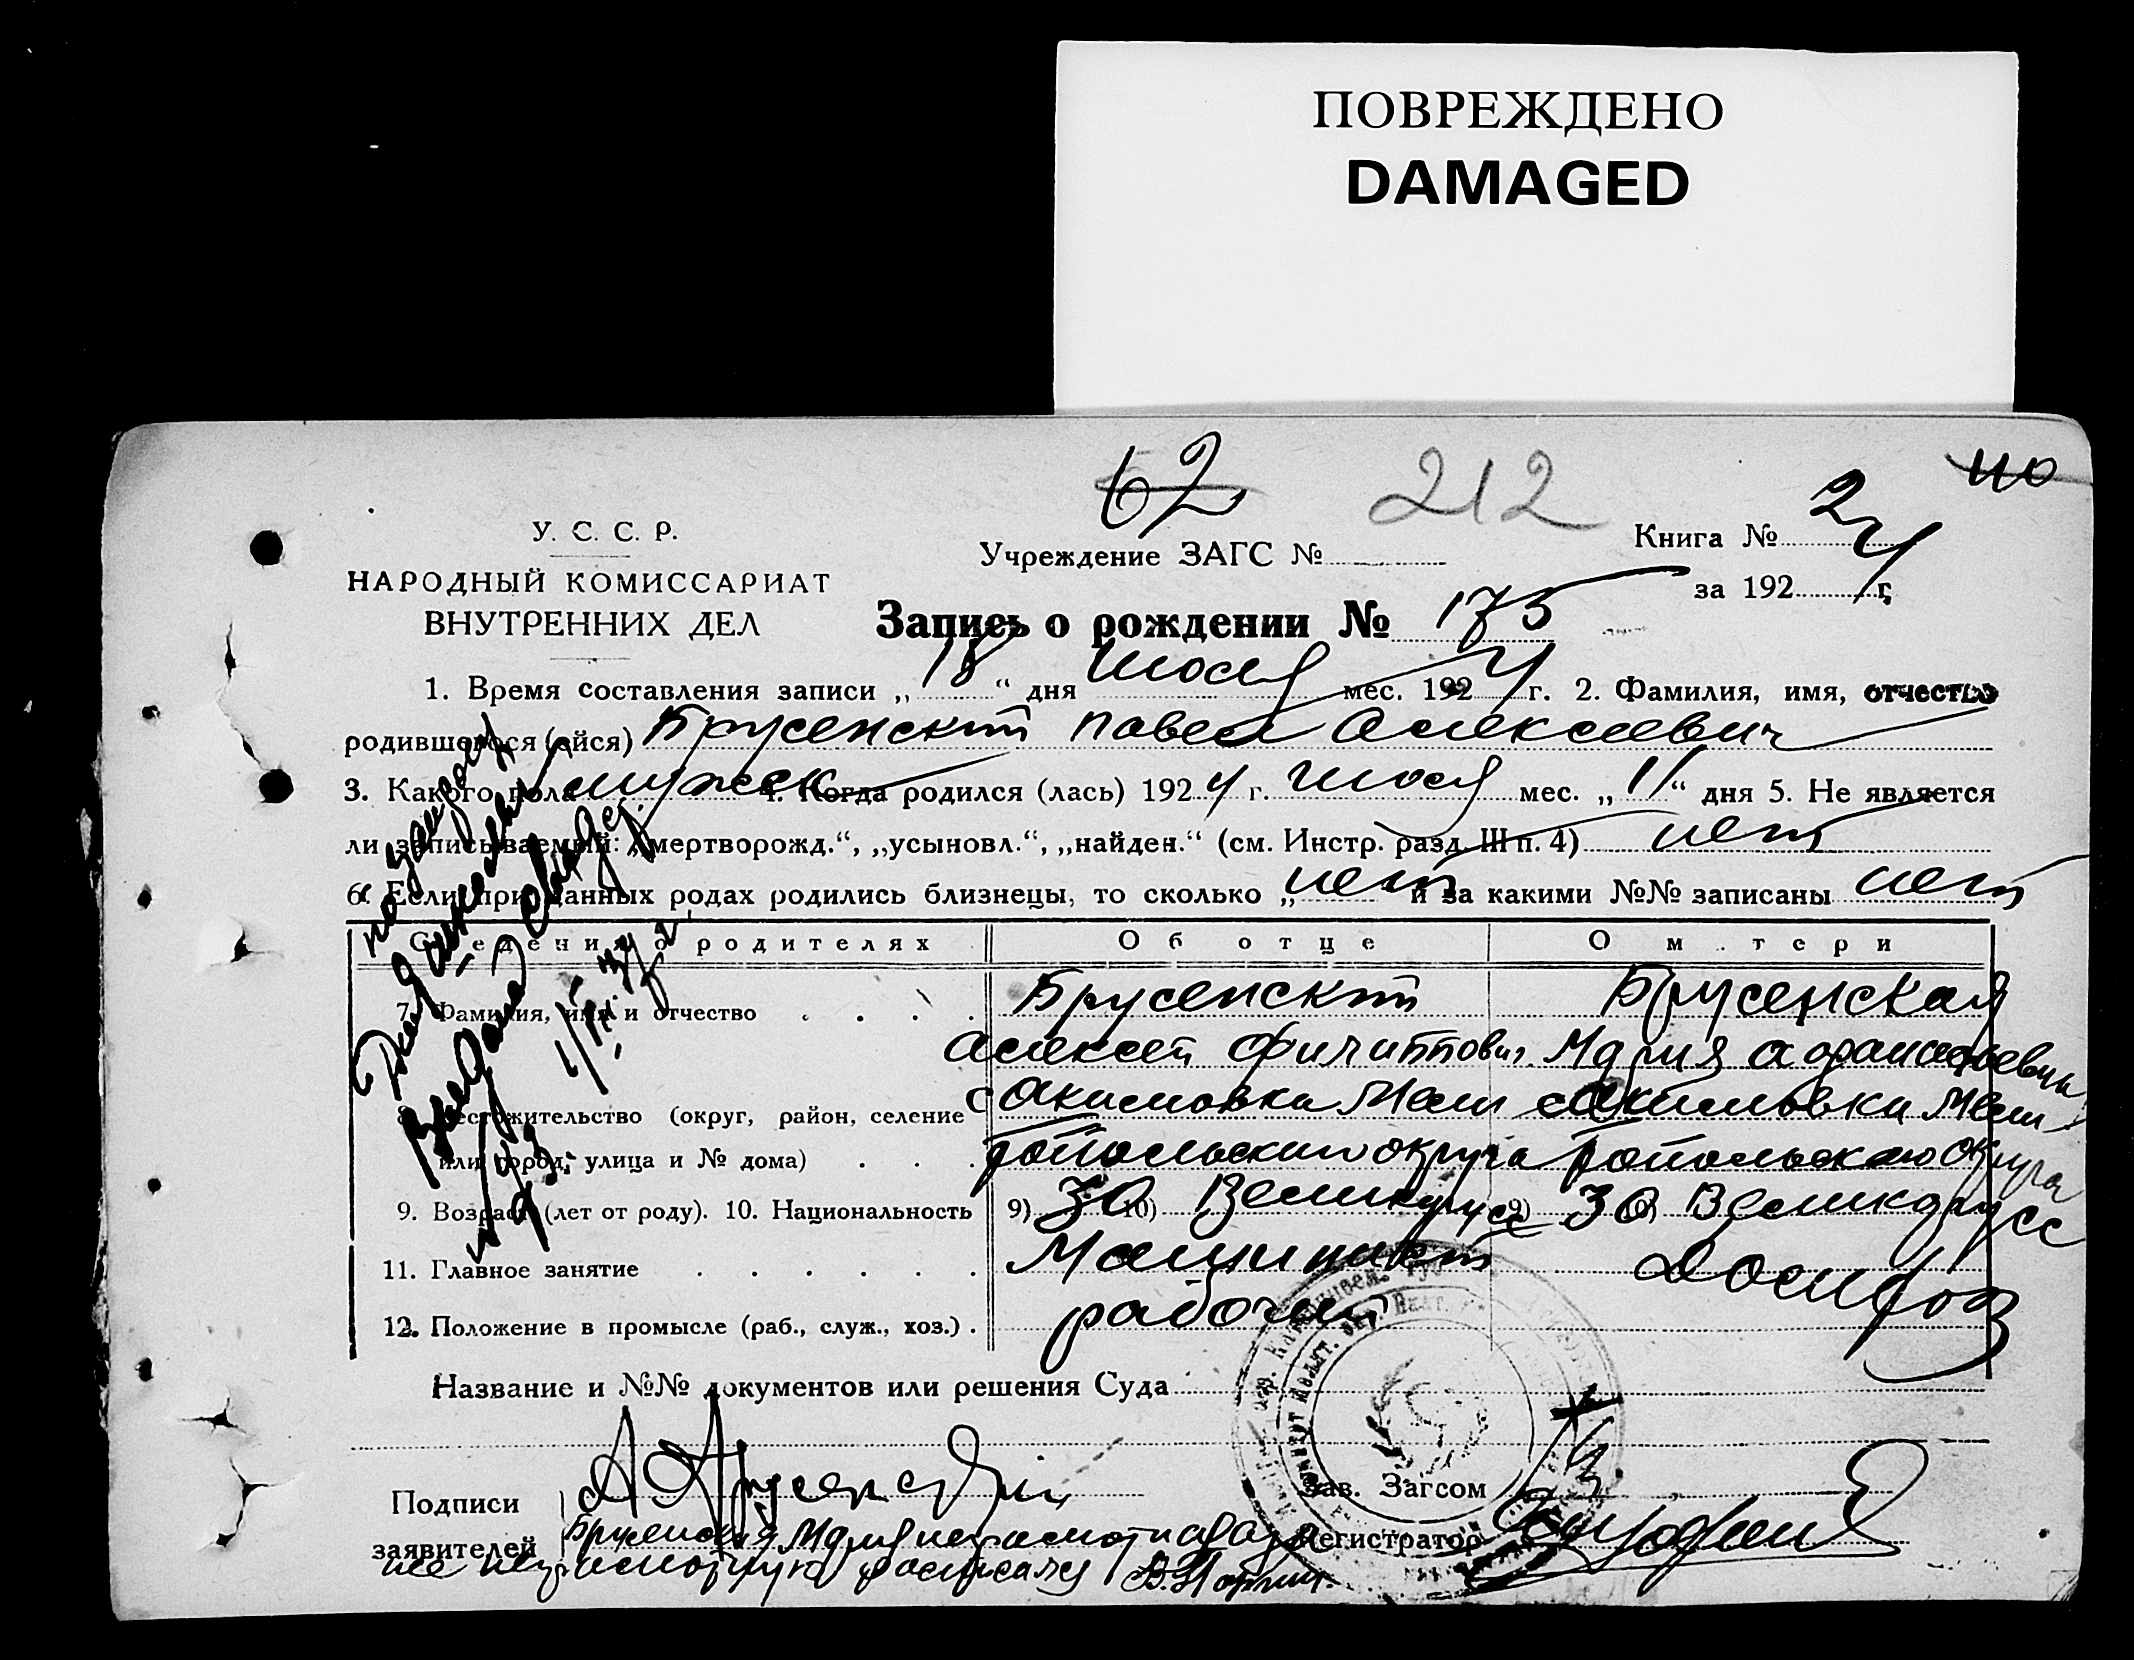 ПОВРЕЖДЕНО
DAMAGED
62 212 110
У. С. С. Р.
НАРОДНЫЙ КОМИССАРИАТ
ВНУТРЕННИХ ДЕЛ
Учреждение ЗАГС №
Книга № 2
за 1924 г.
Запись о рождении № 175
1. Время составления записи „18“ дня июля мес. 1924 г. 2. Фамилия, имя, отчество
родившегося (ейся) Брусенский Павел Алексеевич
3. Какого пола мужск 4. Когда родился (лась) 1924 г. июля мес. „11“ дня 5. Не является
ли записываемый: „мертворожд.“, „усыновл.“, „найден.“ (см. Инстр. разд. III п. 4) нет
6. Если при данных родах родились близнецы, то сколько „нет и за какими №№ записаны нет
Сведения о родителях Об отце О матери
7. Фамилия, имя и отчество Брусенский Брусенская
Алексей Филиппович Мария
8. Местожительство (округ, район, селение с Акимовка Мели с Акимовка Мели
или город, улица и № дома) топольского округа топольского округа
9. Возраст (лет от роду). 10. Национальность 9) 30 10) Великорусс 9) 30 Великорусс
11. Главное занятие Машинист Домхоз
12. Положение в промысле (раб., служ., хоз.) рабочий
Название и №№ документов или решения Суда
Подписи
заявителей
Брусенская Мария неграмотная а за
нее неграмотную расписался
Зав. Загсом
Регистратор